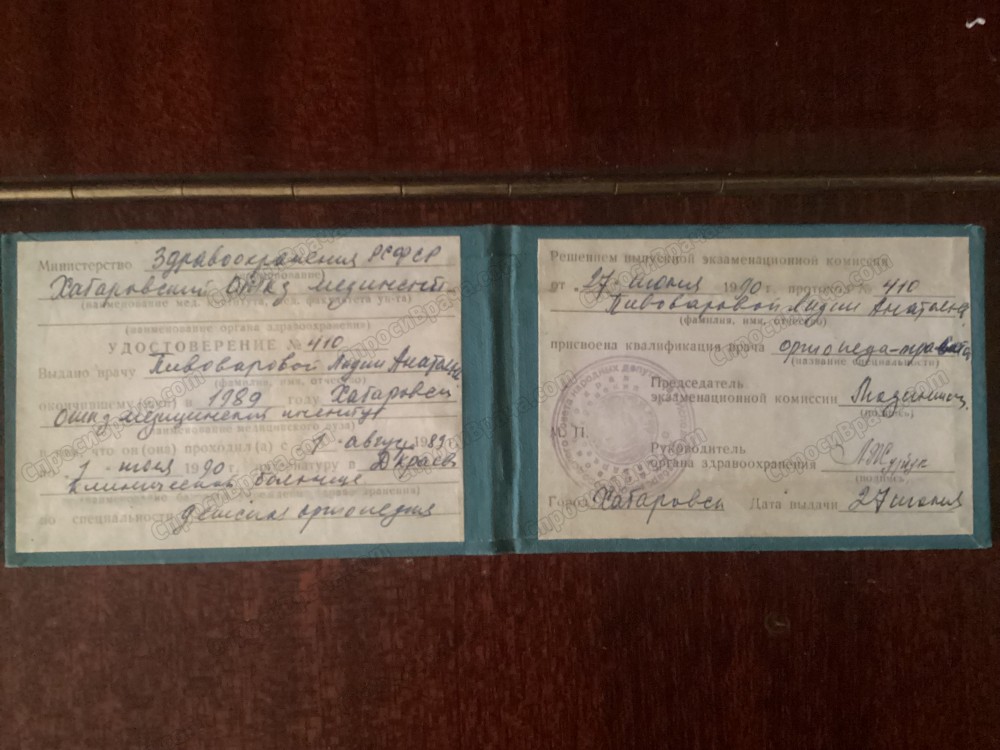 Министерство Здравоохранения РСФСР
Хабаровский ОТКЗ мединстит.
(наименование мед. института, мед. факультета ун-та)
(наименование органа здравоохранения)
УДОСТОВЕРЕНИЕ № 410
Выдано врачу Пивоваровой Лидии Анатольев
(фамилия, имя, отчество)
окончившему в 1989 году Хабаровск
ОТКЗ медицинский институт
(наименование медицинского вуза)
в том, что он (она) проходил (а) с 1 август 1989 г.
1 июля 1990 г. интернатуру в Д Краев
клинической больнице
по специальности детская ортопедия
Решением выпускной экзаменационной комиссии
от 27 июня 1990 г., протокол № 410
Пивоваровой Лидии Анатольевн
(фамилия, имя, отчество)
присвоена квалификация врача ортопеда-травмато
(название специальности)
Председатель
экзаменационной комиссии
(подпись)
М. П.
Руководитель
органа здравоохранения
(подпись)
Город Хабаровск Дата выдачи 27 июня
СпросиВрача.com